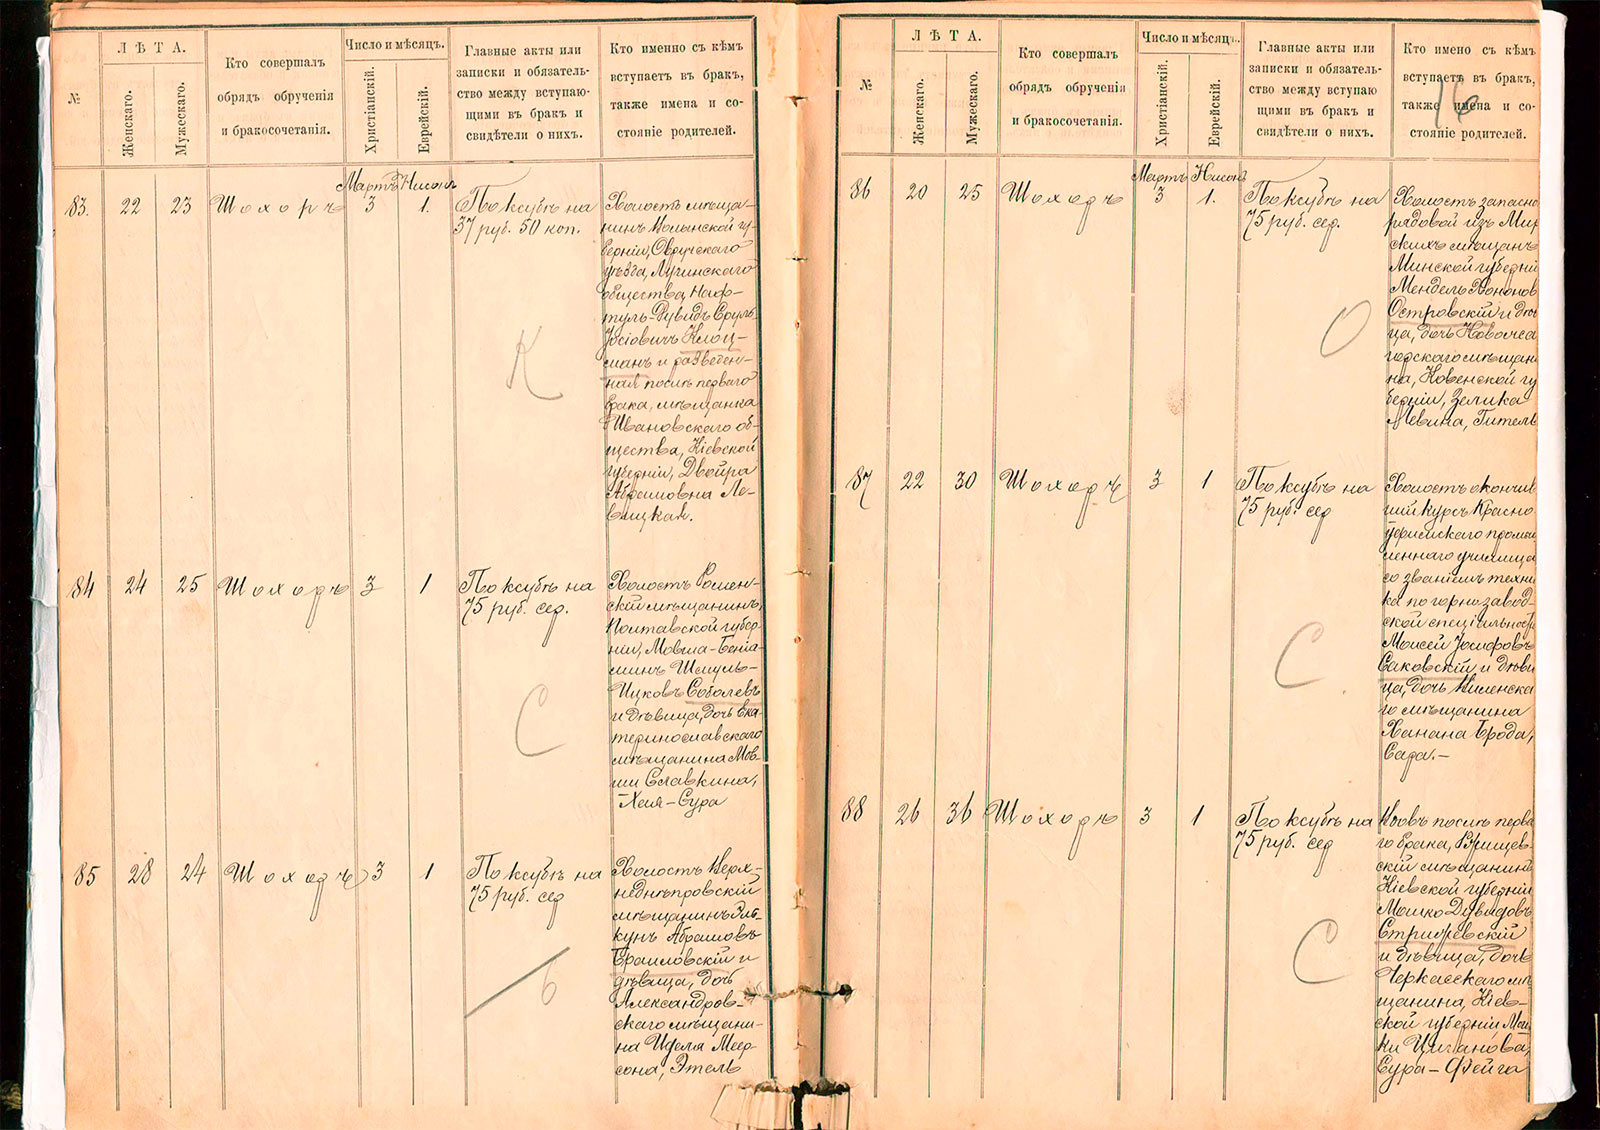 №
ЛѢТА.
Женскаго.
Мужескаго.
Кто совершалъ
обрядъ обрученія
и бракосочетанія.
Число и мѣсяцъ.
Христіанскій.
Еврейскій.
Главные акты или
записки и обязатель-
ство между вступаю-
щими въ бракъ и
свидѣтели о нихъ.
Кто именно съ кѣмъ
вступаетъ въ бракъ,
также имена и со-
стояніе родителей.
Мартъ Нисонъ
83. 22 23 Шохоръ 3 1.
По ксубѣ на
37 руб. 50 коп.
Холостъ мѣща-
нинъ Волынской гу-
берніи, Овручскаго
уѣзда, Лугинскаго
общества, Наф-
туль-Дувидъ Сруль-
Іосіовичъ Клоц-
манъ и разведен-
ная послѣ перваго
брака, мѣщанка
Ивановскаго об-
щества, Кіевской
губерніи, Двойра
Абрамовна Ле-
вицкая.
К
84 24 25 Шохоръ 3 1
По ксубѣ на
75 руб. сер.
Холостъ Ромен-
скій мѣщанинъ,
Полтавской губер-
ніи, Мовша-Беніа-
минъ Шмуль-
Ицковъ Соболевъ
и дѣвица, дочь Ека-
теринославскаго
мѣщанина Мов-
ши Славкина,
Хая-Сура
С
85 28 24 Шохоръ 3 1
По ксубѣ на
75 руб. сер
Холостъ Верх-
неднѣпровскій
мѣщанинъ
Абрамовъ
Браиловскій и
дѣвица, дочь
Александров-
скаго мѣщани-
на Иделя Меер-
сона, Этель
Б
№
ЛѢТА.
Женскаго.
Мужескаго.
Кто совершалъ
обрядъ обрученія
и бракосочетанія.
Число и мѣсяцъ.
Христіанскій.
Еврейскій.
Главные акты или
записки и обязатель-
ство между вступаю
щими въ бракъ и
свидѣтели о нихъ.
Кто имено съ кѣмъ
вступаетъ въ бракъ,
также имена и со-
стояніе родителей.
16
Мартъ Нисонъ
86 20 25 Шохоръ 3 1.
По ксубѣ на
75 руб. сер.
Холостъ запасно
рядовой изъ Мир
скихъ мѣщанъ
Минской губерніи
Мендель Хононов
Островскій и дѣви
ца, дочь Новоалеа
городскаго мѣщан
на, Ковенской гу
берніи, Зелика
Левина, Гитель
О
87 22 30 Шохоръ 3 1
По ксубѣ на
75 руб. сер
Холостъ окончив
шій курсъ Красно
уфимскаго промыш
леннаго училища
со званіемъ техни
ка по горнозавод-
ской спеціальности
Моисей Іосифовъ
Саковскій и дѣви
ца, дочь Виленска
го мѣщанина
Ханана Брода,
Сара.-
С
88 26 36 Шохоръ 3 1
По ксубѣ на
75 руб. сер
Вдовъ послѣ перва
го брака, Ржищев-
скій мѣщанинъ
Кіевской губерніи
Мошко Дувидовъ
Стрижевскій
и дѣвица, дочь
Черкасскаго мѣ
щанина, Кіев-
ской губерніи Мош
ки Циганова,
Сура-Фейга
С